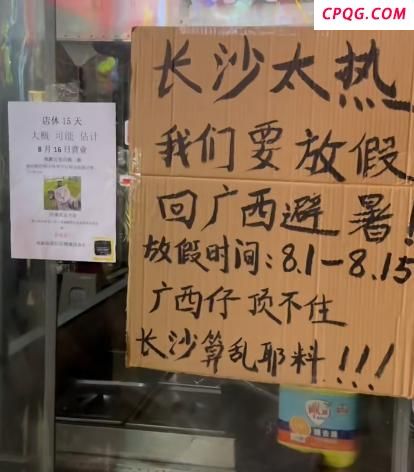 CPQG.COM
长沙太热
我们要放假
回广西避暑!
放假时间:8.1-8.15
广西仔顶不住
长沙算乱耶料!!!
店休 15 天
大概 可能 估计
8 月 16 日营业